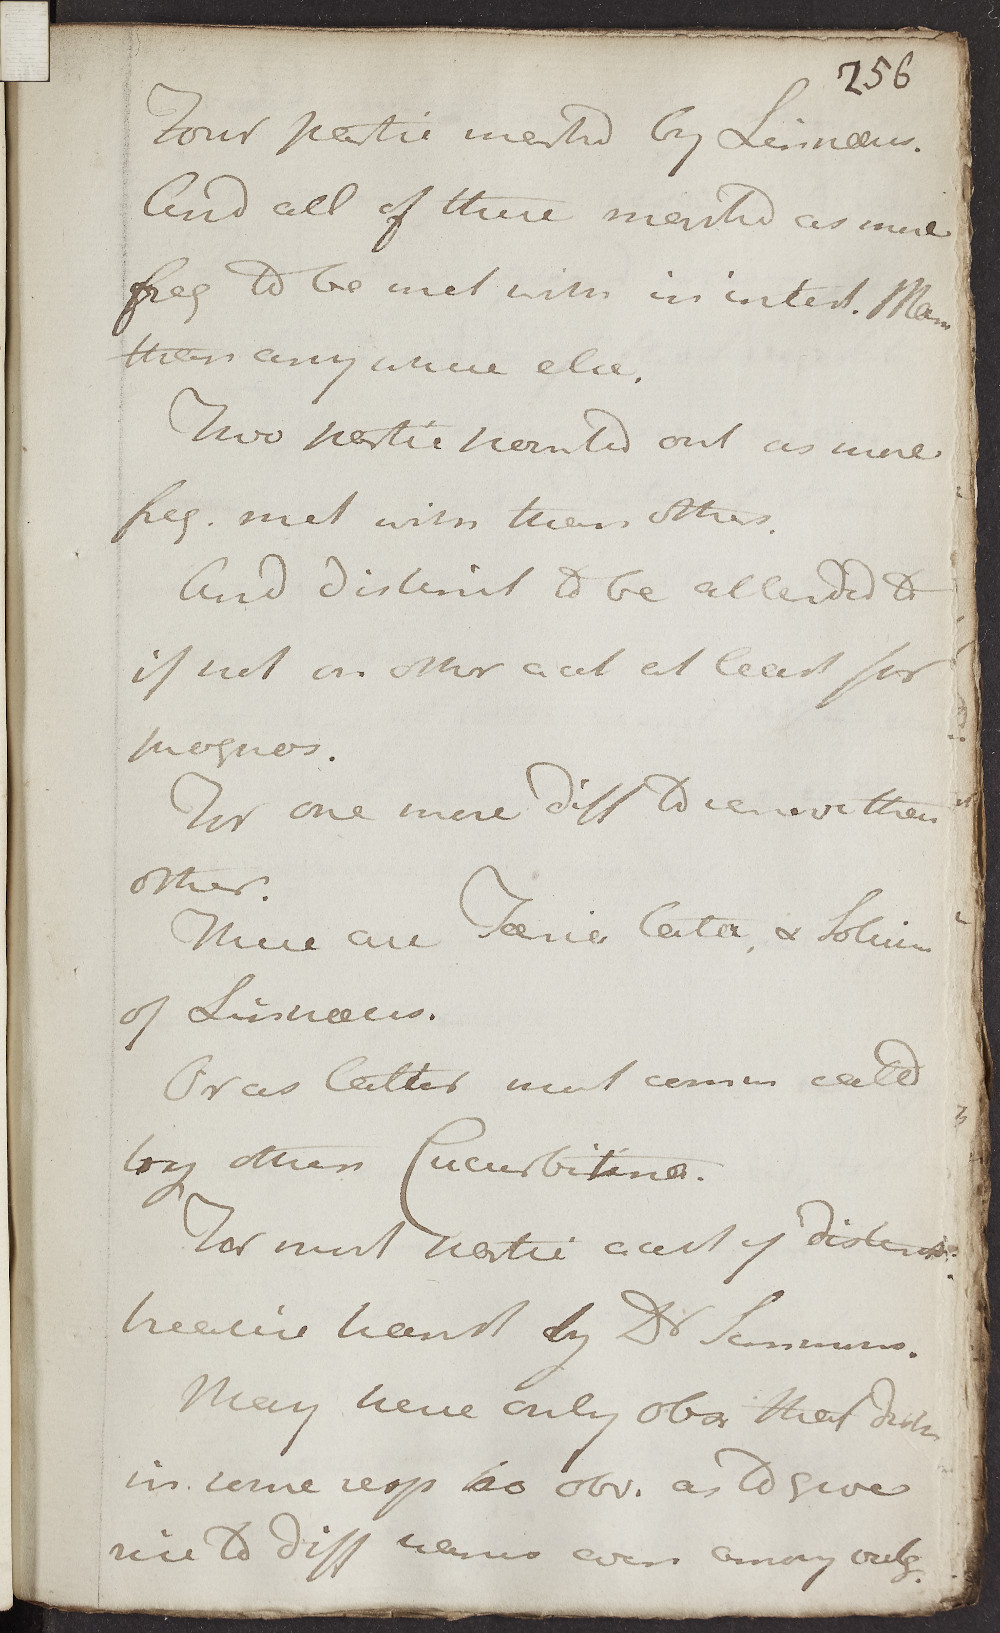 256
Four partic mentd by Linnæus.
And all of these mentd as more
freq to be met with in intest. Man
than any where else.
Two partic pointed out as more
freq. met with than others.
And distinct to be attended to
if not on other acct at least for
prognos.
For one more diff to remove than
other.
These are Tænia Lata, & Solium
of Linnæus.
Or as latter most comm calld
by others Cucurbitina.
For most partic acct of distinct:
treatise transl by Dr Simmons.
May here only obsr that distn
in some resp so obv. as to give
rise to diff names even among vulg.